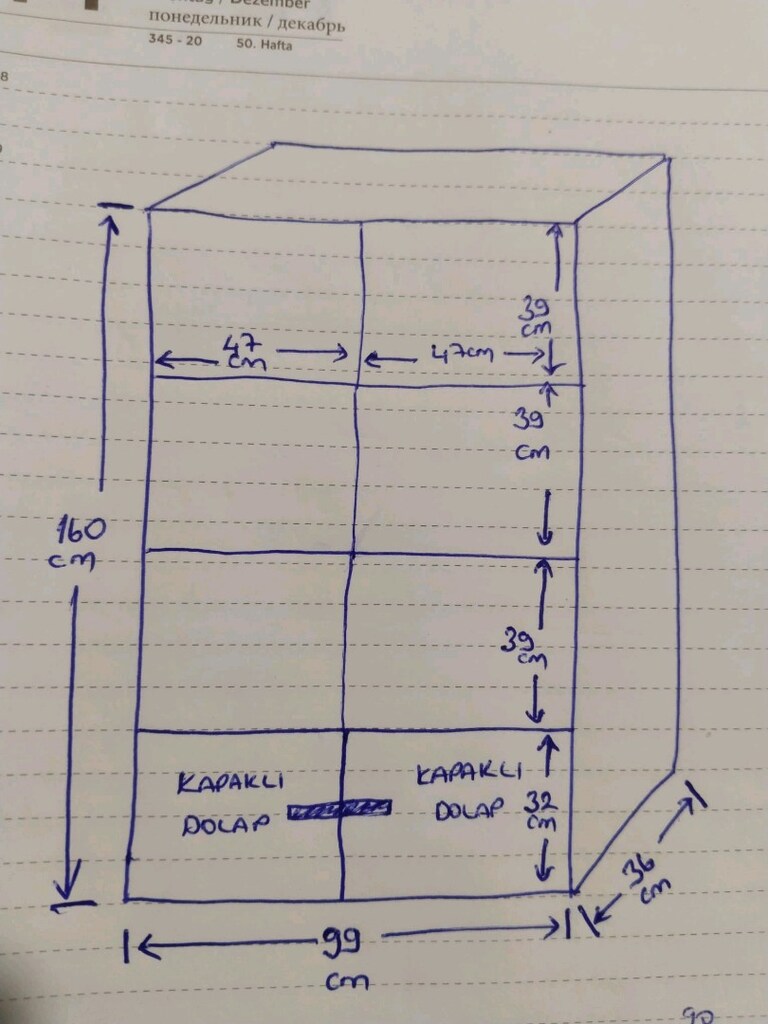 понедельник / декабрь
345 - 20 50. Hafta
8
39
cm
47
cm
47cm
39
cm
160
cm
39
cm
KAPAKLI
DOLAP
KAPAKLI
DOLAP
32
cm
36
cm
99
cm
90